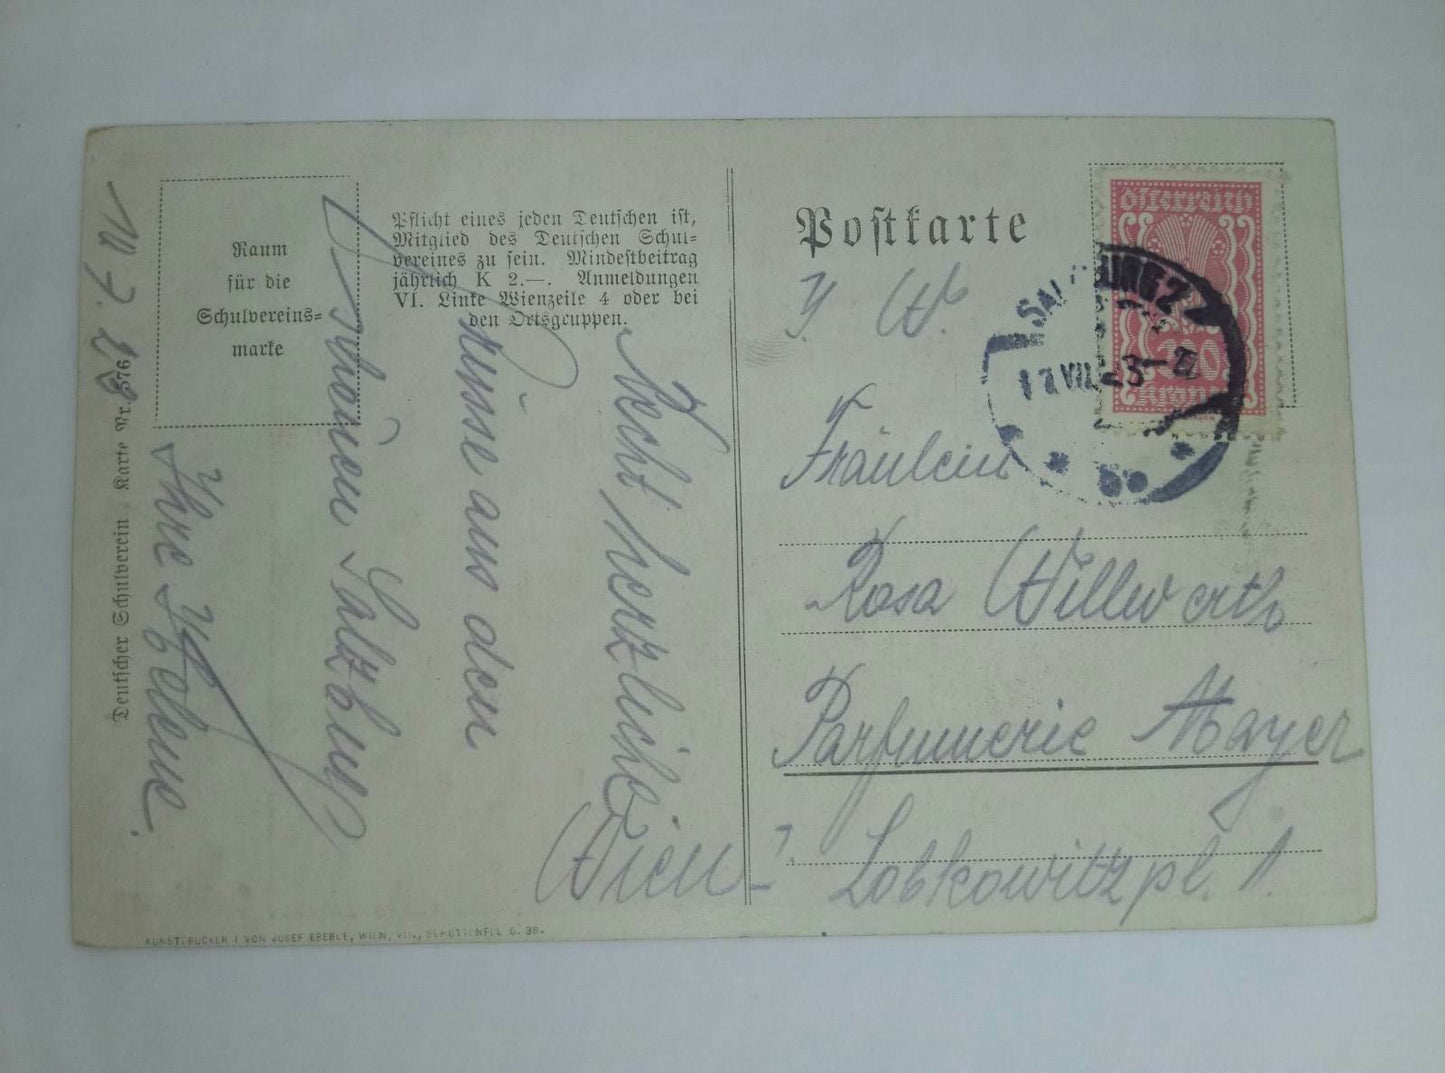 Raum
für die
Schulvereins=
marke
Pflicht eines jeden Deutschen ist,
Mitglied des Deutschen Schul=
vereines zu sein. Mindestbeitrag
jährlich K 2.—. Anmeldungen
VI. Linke Wienzeile 4 oder bei
den Ortsgruppen.
Deutscher Schulverein Karte Nr. 376
Recht herzliche
Küsse aus dem
schönen Salzburg
Ihre Helene.
KUNSTDRUCKEREI VON JOSEF EBERLE, WIEN, VII., SCHOTTENFELDG. 38.
Postkarte
Österreich
Kronen
VII. 23
Fräulein
Rosa Willwerth
Parfumerie Mayer
Wien
Lobkowitzpl. 1.